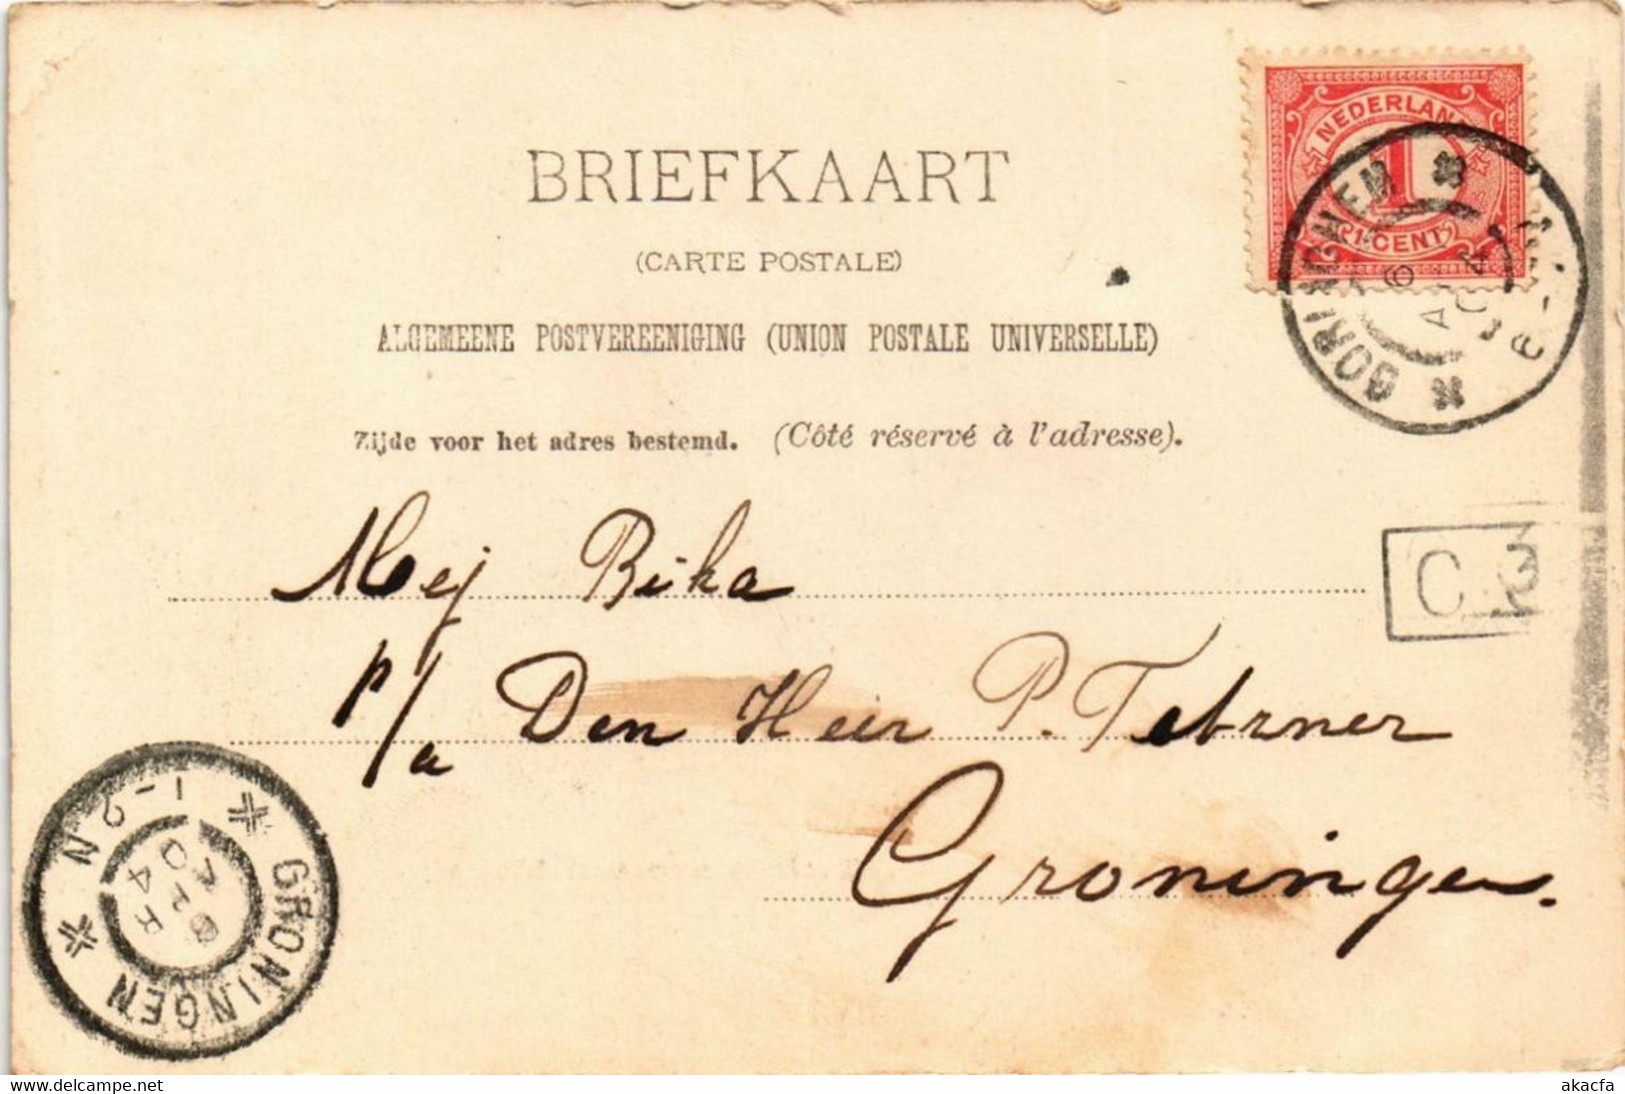 BRIEFKAART
(CARTE POSTALE)
ALGEMEENE POSTVEREENIGING (UNION POSTALE UNIVERSELLE)
Zijde voor het adres bestemd. (Côté réservé à l'adresse).
NEDERLAND
1
1 CENT
GORINCHEM
6
04
C 3
Mej Rika
p/a Den Heer P.
Groningen.
GRONINGEN
1-2 N
6 APR
04
akacfa
www.delcampe.net